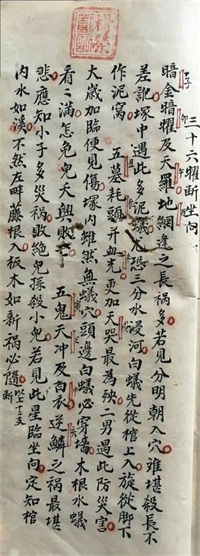 三十六耀断坐向
暗金暗耀及天罗地網逢之長禍多若見分明朝入穴雖堪殺長不
差記塚中遇此多泥蟻恐三分水浸河白蟻先從棺上入旋從脚下
作泥窩 五墓耗頭并血光更加天哭最為殃二男遇此防災害
大歲加臨便見傷塚内雖然無蟻穴頭邊白蟻必穿墙木根水蟻
看二滿怎免兒夭與敗亡 五鬼天冲及白衣逆鱗之禍最堪
悲應知小子多災禍敗絕兒孫殺小兒若見此星臨坐向定知棺
内水如溪不然左畔藤根入板木如新禍必隨